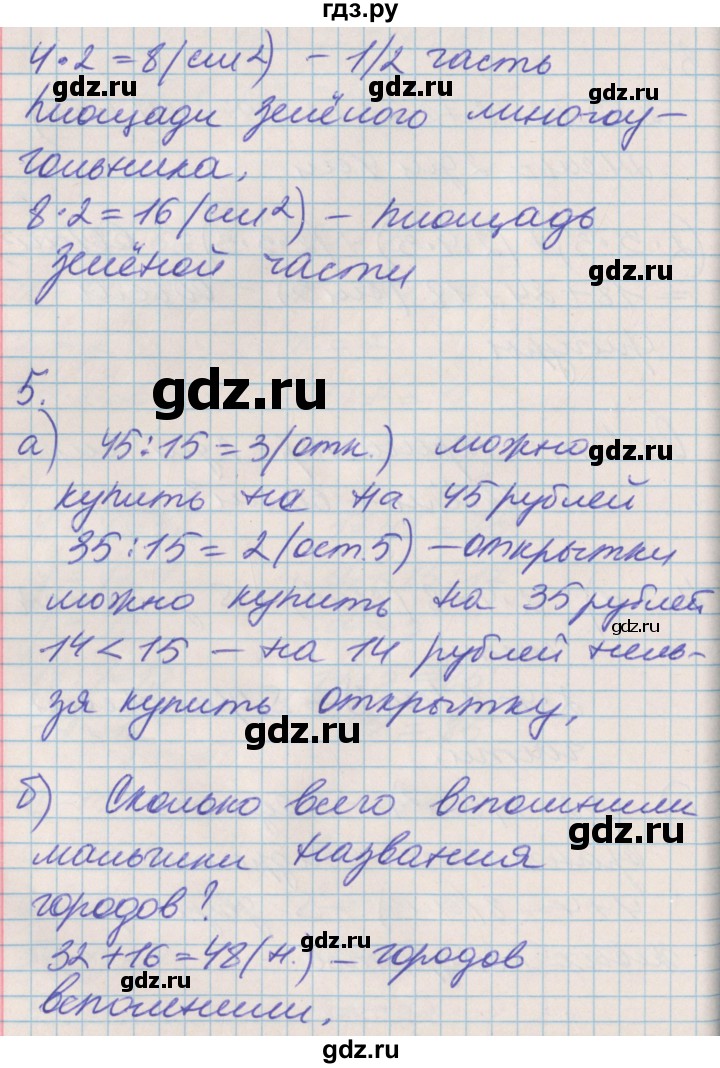 гдз.ру
4·2=8(см2) – 1/2 часть
площади зелёного многоу–
гольника.
8·2=16(см2) – площадь
зелёной части
gdz.ru
gdz.ru
gdz.ru
gdz.ru
5.
gdz.ru
а) 45:15=3(отк.) можно
gdz.ru
купить на на 45 рублей
35:15=2(ост.5) – открытки
можно купить на 35 рублей
gdz.ru
14<15 – на 14 рублей нель–
зя купить открытку.
gdz.ru
б) Сколько всего вспомнили
gdz.ru
мальчики названия
городов?
gdz.ru
32+16=48(н.) – городов
вспомнили.
gdz.ru